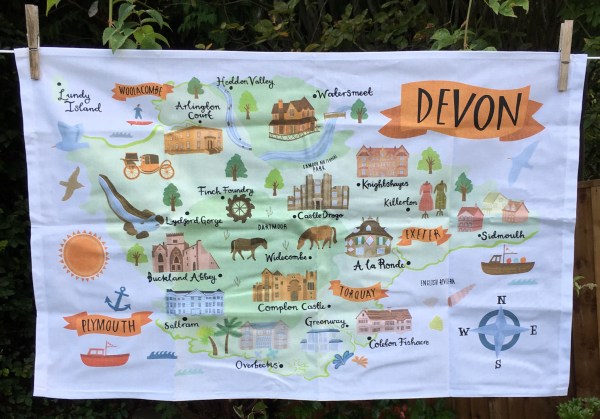 Heddon Valley
Lundy
Island
WOOLACOMBE
Arlington
Court
Watersmeet
DEVON
EXMOOR NATIONAL
PARK
Knightshayes
Finch Foundry
Killerton
Lydford Gorge
Castle Drogo
DARTMOOR
EXETER
Sidmouth
Widecombe
A la Ronde
Buckland Abbey
Compton Castle
TORQUAY
ENGLISH RIVIERA
PLYMOUTH
Saltram
Greenway
Coleton Fishacre
Overbecks
N
W E
S